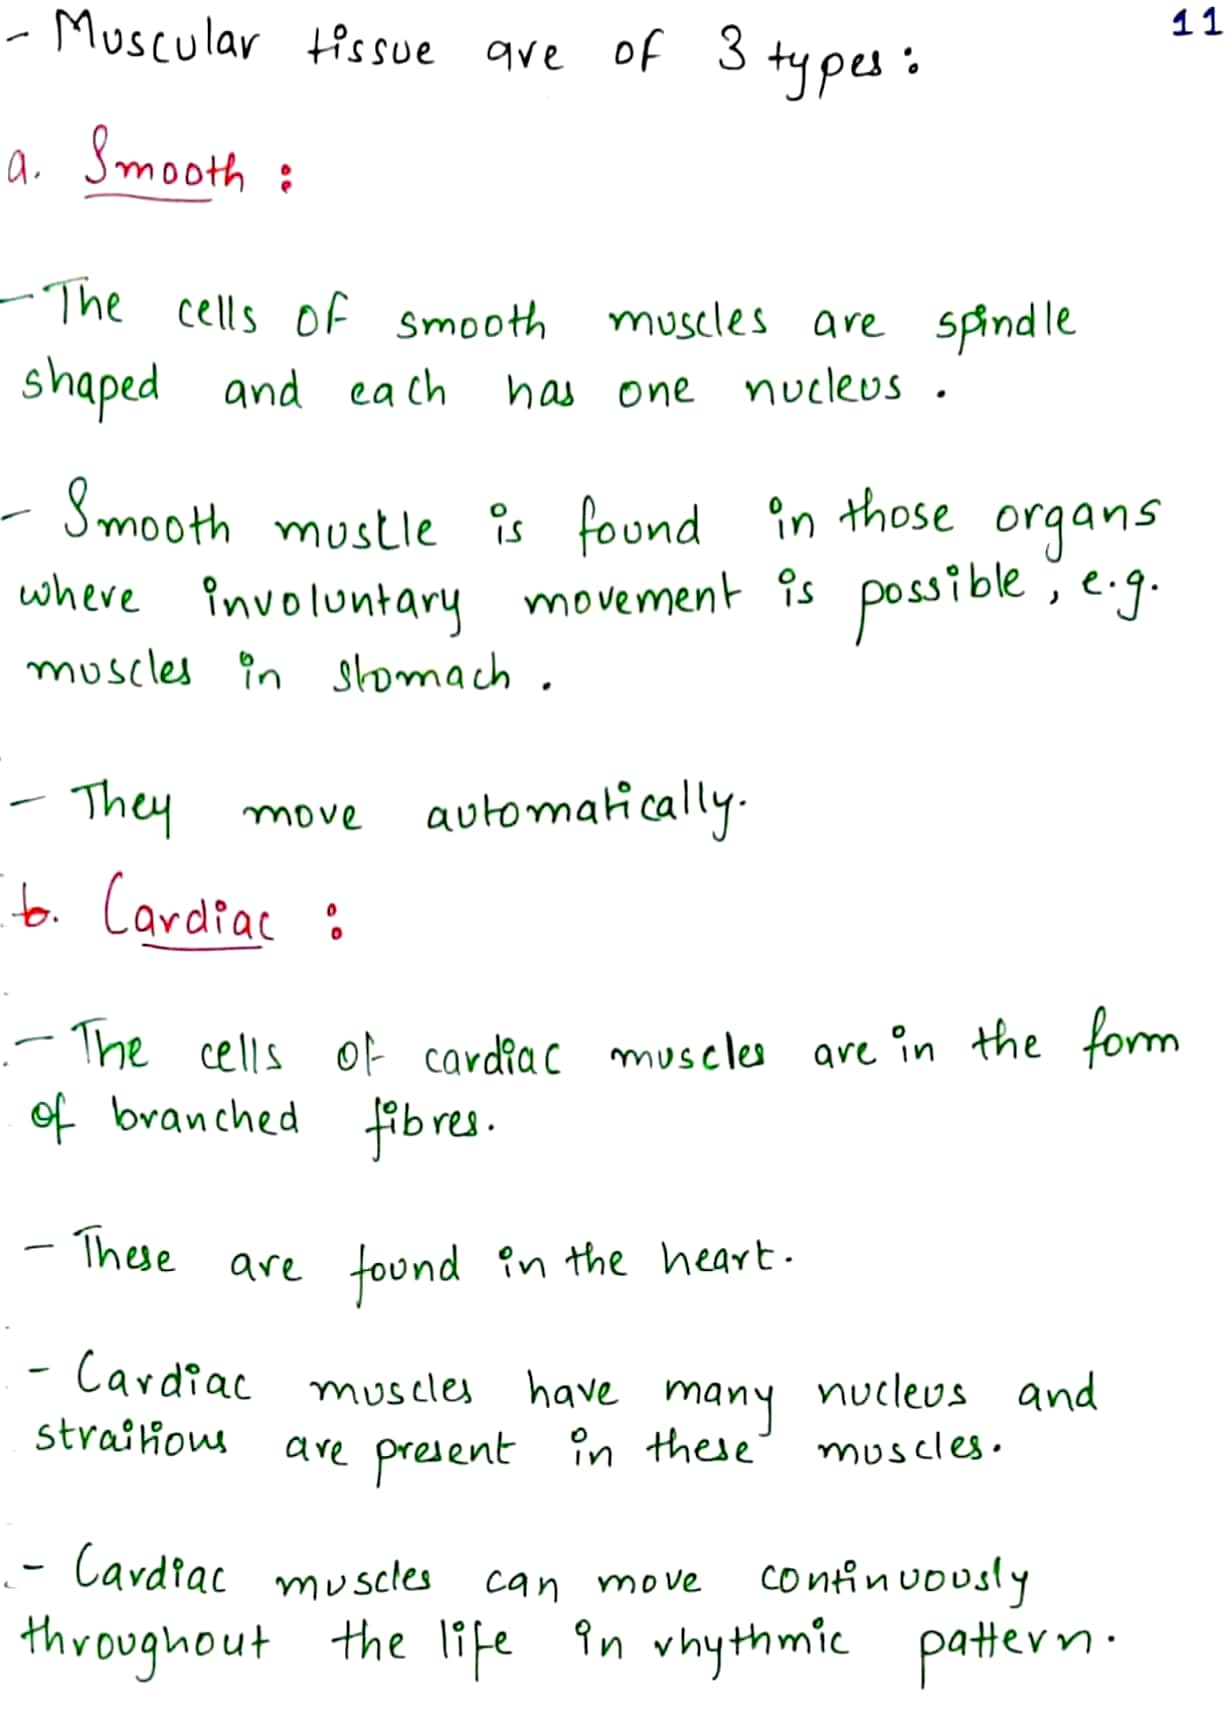 11
- Muscular tissue are of 3 types:
a. Smooth :
- The cells of smooth muscles are spindle
shaped and each has one nucleus.
- Smooth muscle is found in those organs
where involuntary movement is possible, e.g.
muscles in stomach.
- They move automatically.
b. Cardiac :
- The cells of cardiac muscles are in the form
of branched fibres.
- These are found in the heart.
- Cardiac muscles have many nucleus and
straitions are present in these muscles.
- Cardiac muscles can move continuously
throughout the life in rhythmic pattern.